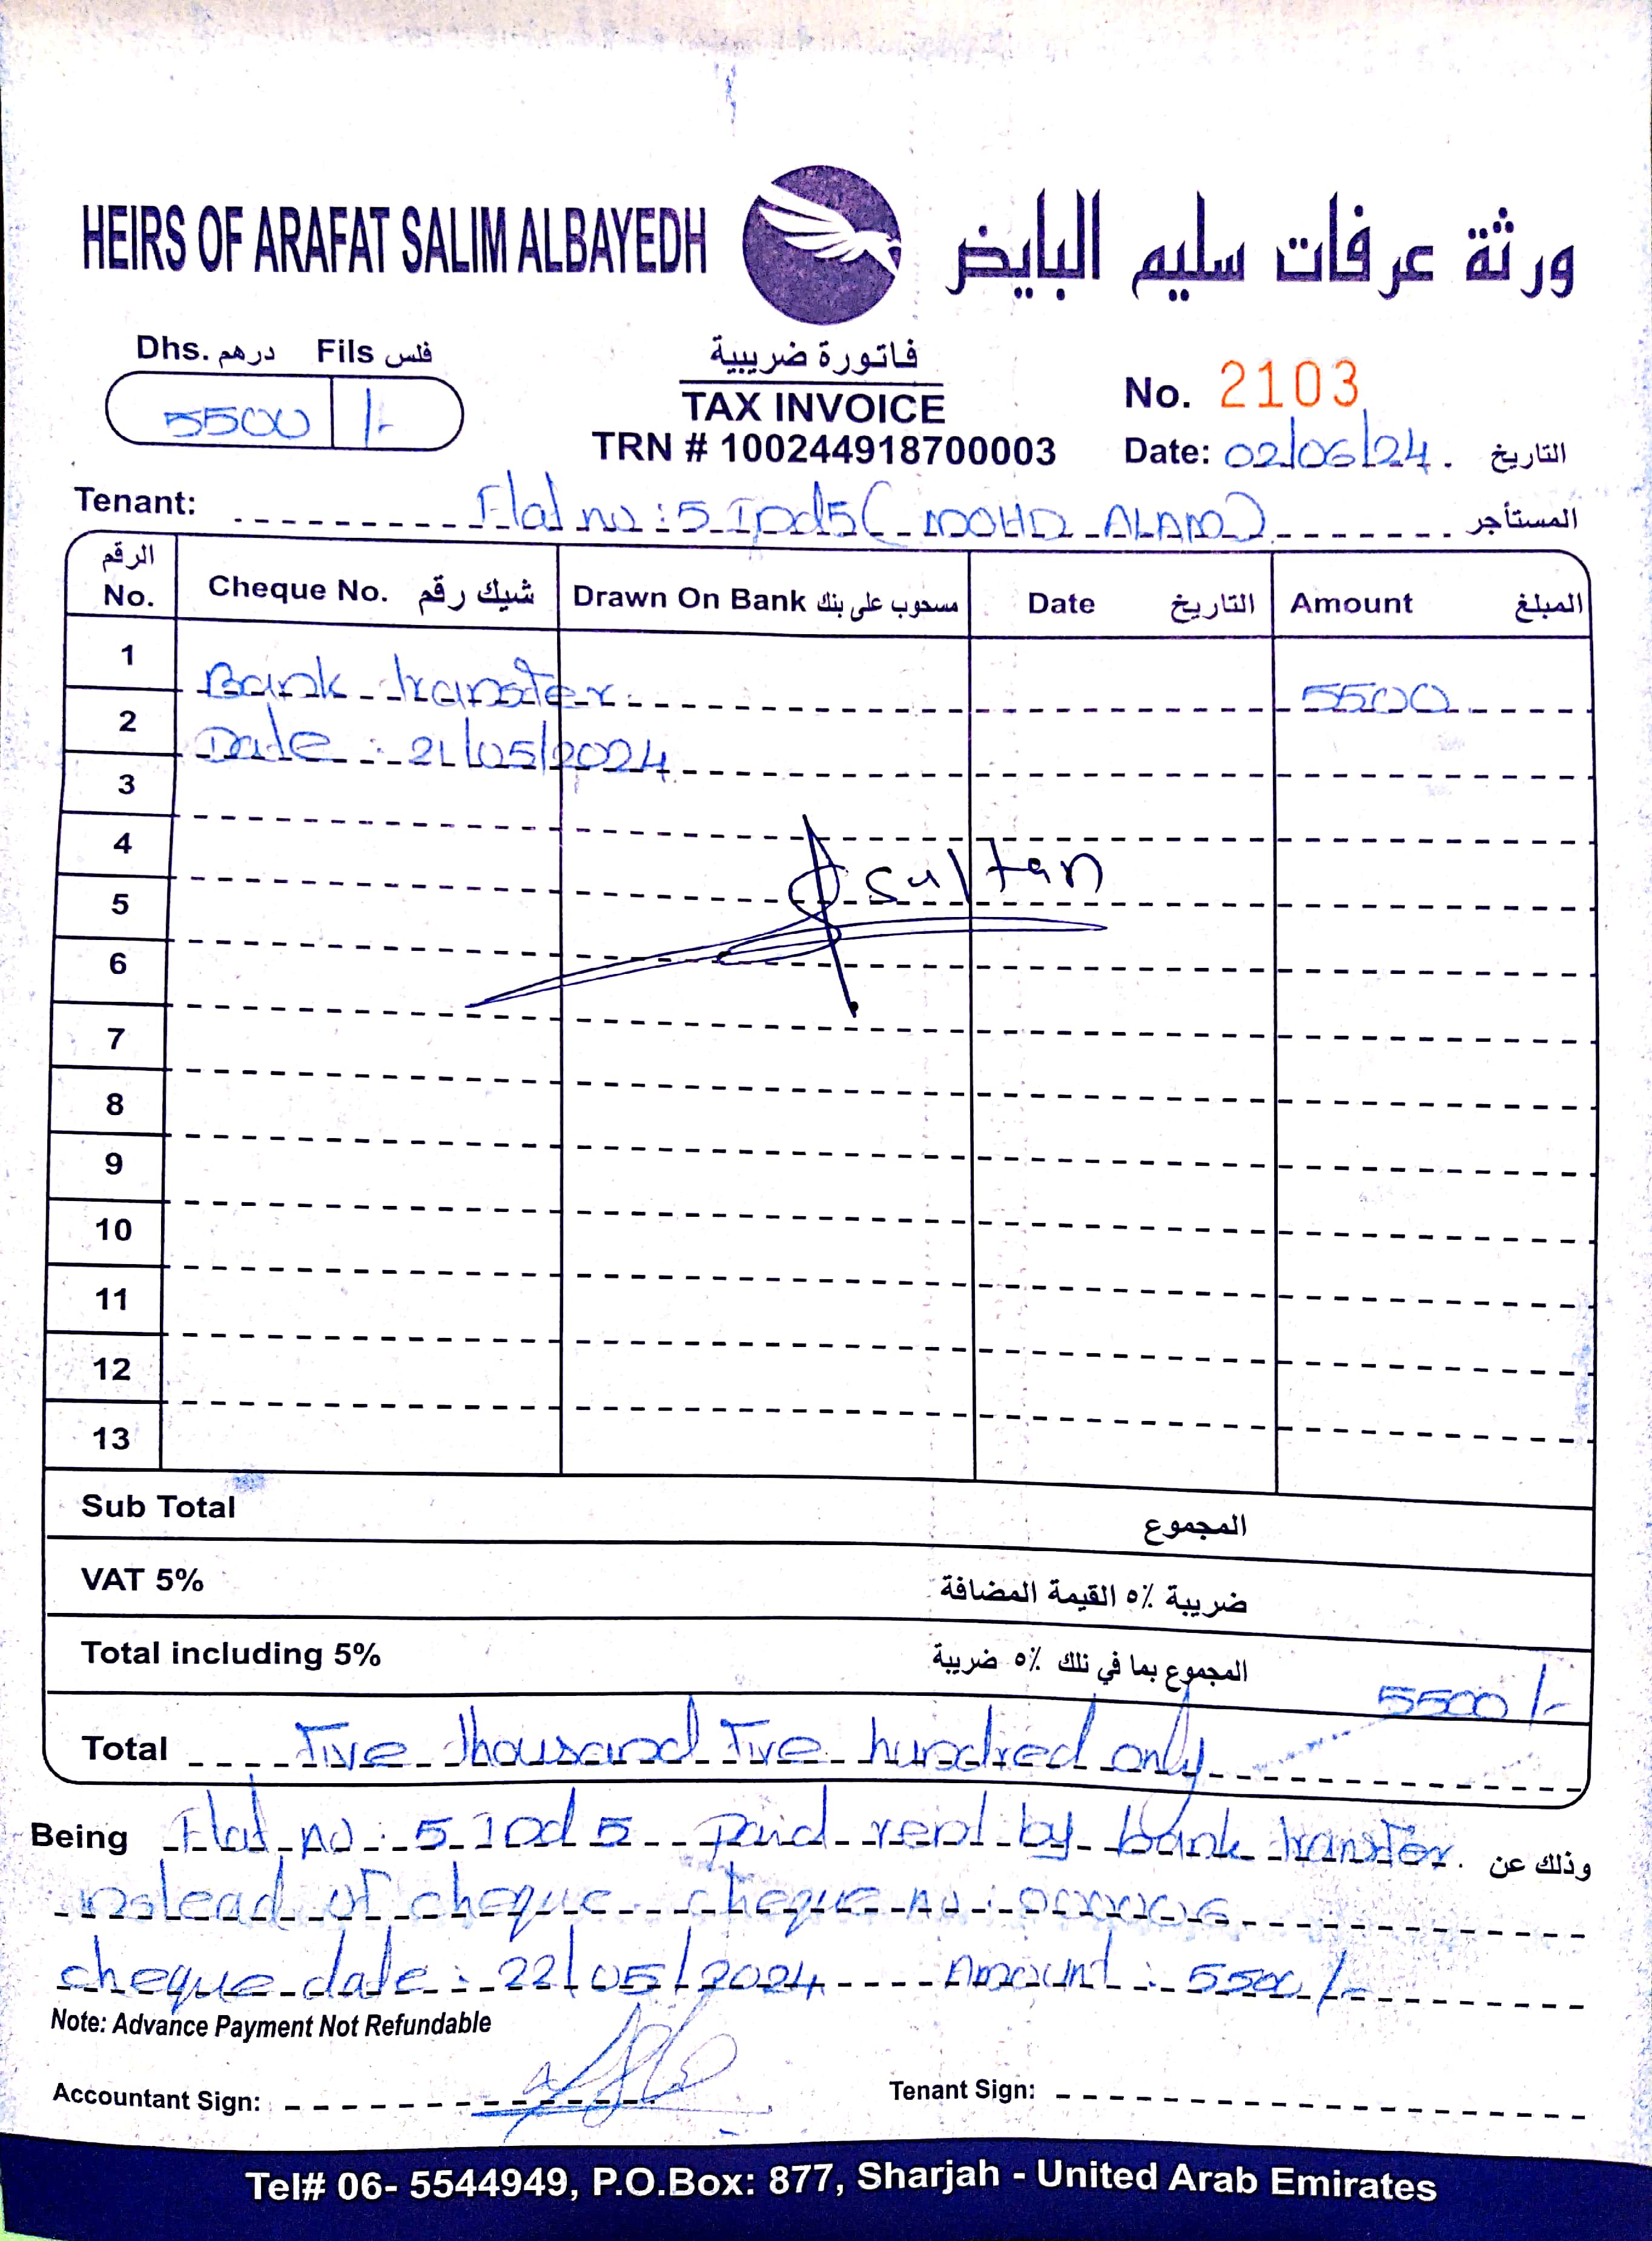 HEIRS OF ARAFAT SALIM ALBAYEDH
ورثة عرفات سليم البايض
Dhs. درهم Fils فلس
5500 /-
فاتورة ضريبية
TAX INVOICE
TRN # 100244918700003
No. 2103
Date: 02/06/24. التاريخ
Tenant: Flat no : 5 Ipd5 ( MOHD ALAM) المستأجر
الرقم No. Cheque No. شيك رقم Drawn On Bank مسحوب على بنك Date التاريخ Amount المبلغ
1 Bank transfer. 5500
2 Date : 21/05/2024
3
4
sultan
5
6
7
8
9
10
11
12
13
Sub Total المجموع
VAT 5% ضريبة ٥٪ القيمة المضافة
Total including 5% المجموع بما في تلك ٥٪ ضريبة 5500/-
Total Five thousand Five hundred only
Being Flat no : 5 Ipd 5 paid rent by bank transfer. وذلك عن
instead of cheque cheque no : 000006
cheque date : 22/05/2024 Amount : 5500/-
Note: Advance Payment Not Refundable
Accountant Sign: Tenant Sign:
Tel# 06- 5544949, P.O.Box: 877, Sharjah - United Arab Emirates